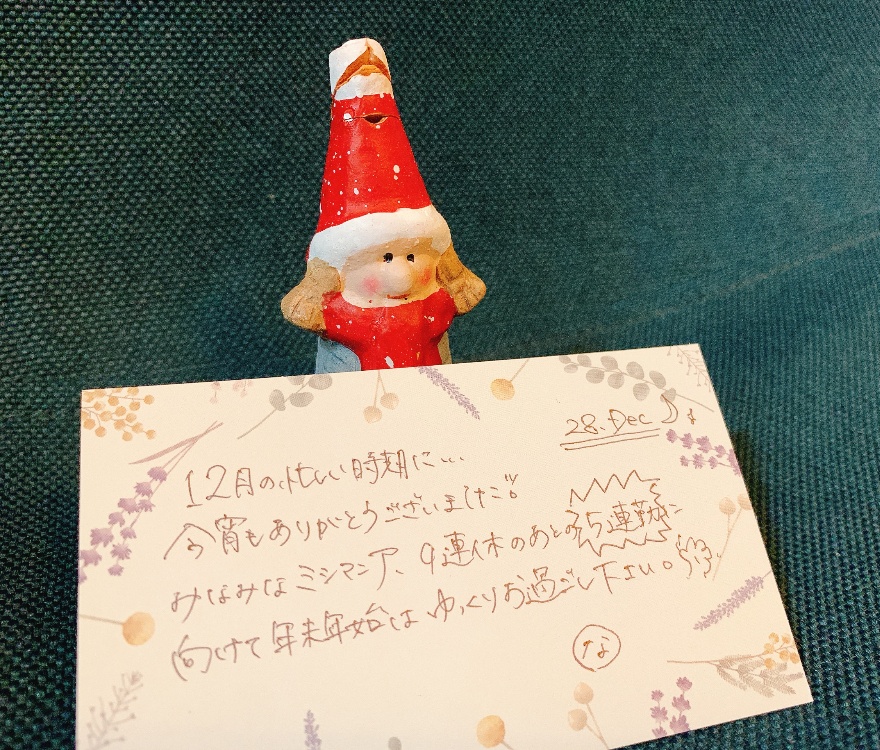 28. Dec
12月の忙しい時期に...
今宵もありがとうございました
みなみなミシマニア、9連休のあとの5連勤に
向けて年末年始はゆっくりお過ごし下さい。
な